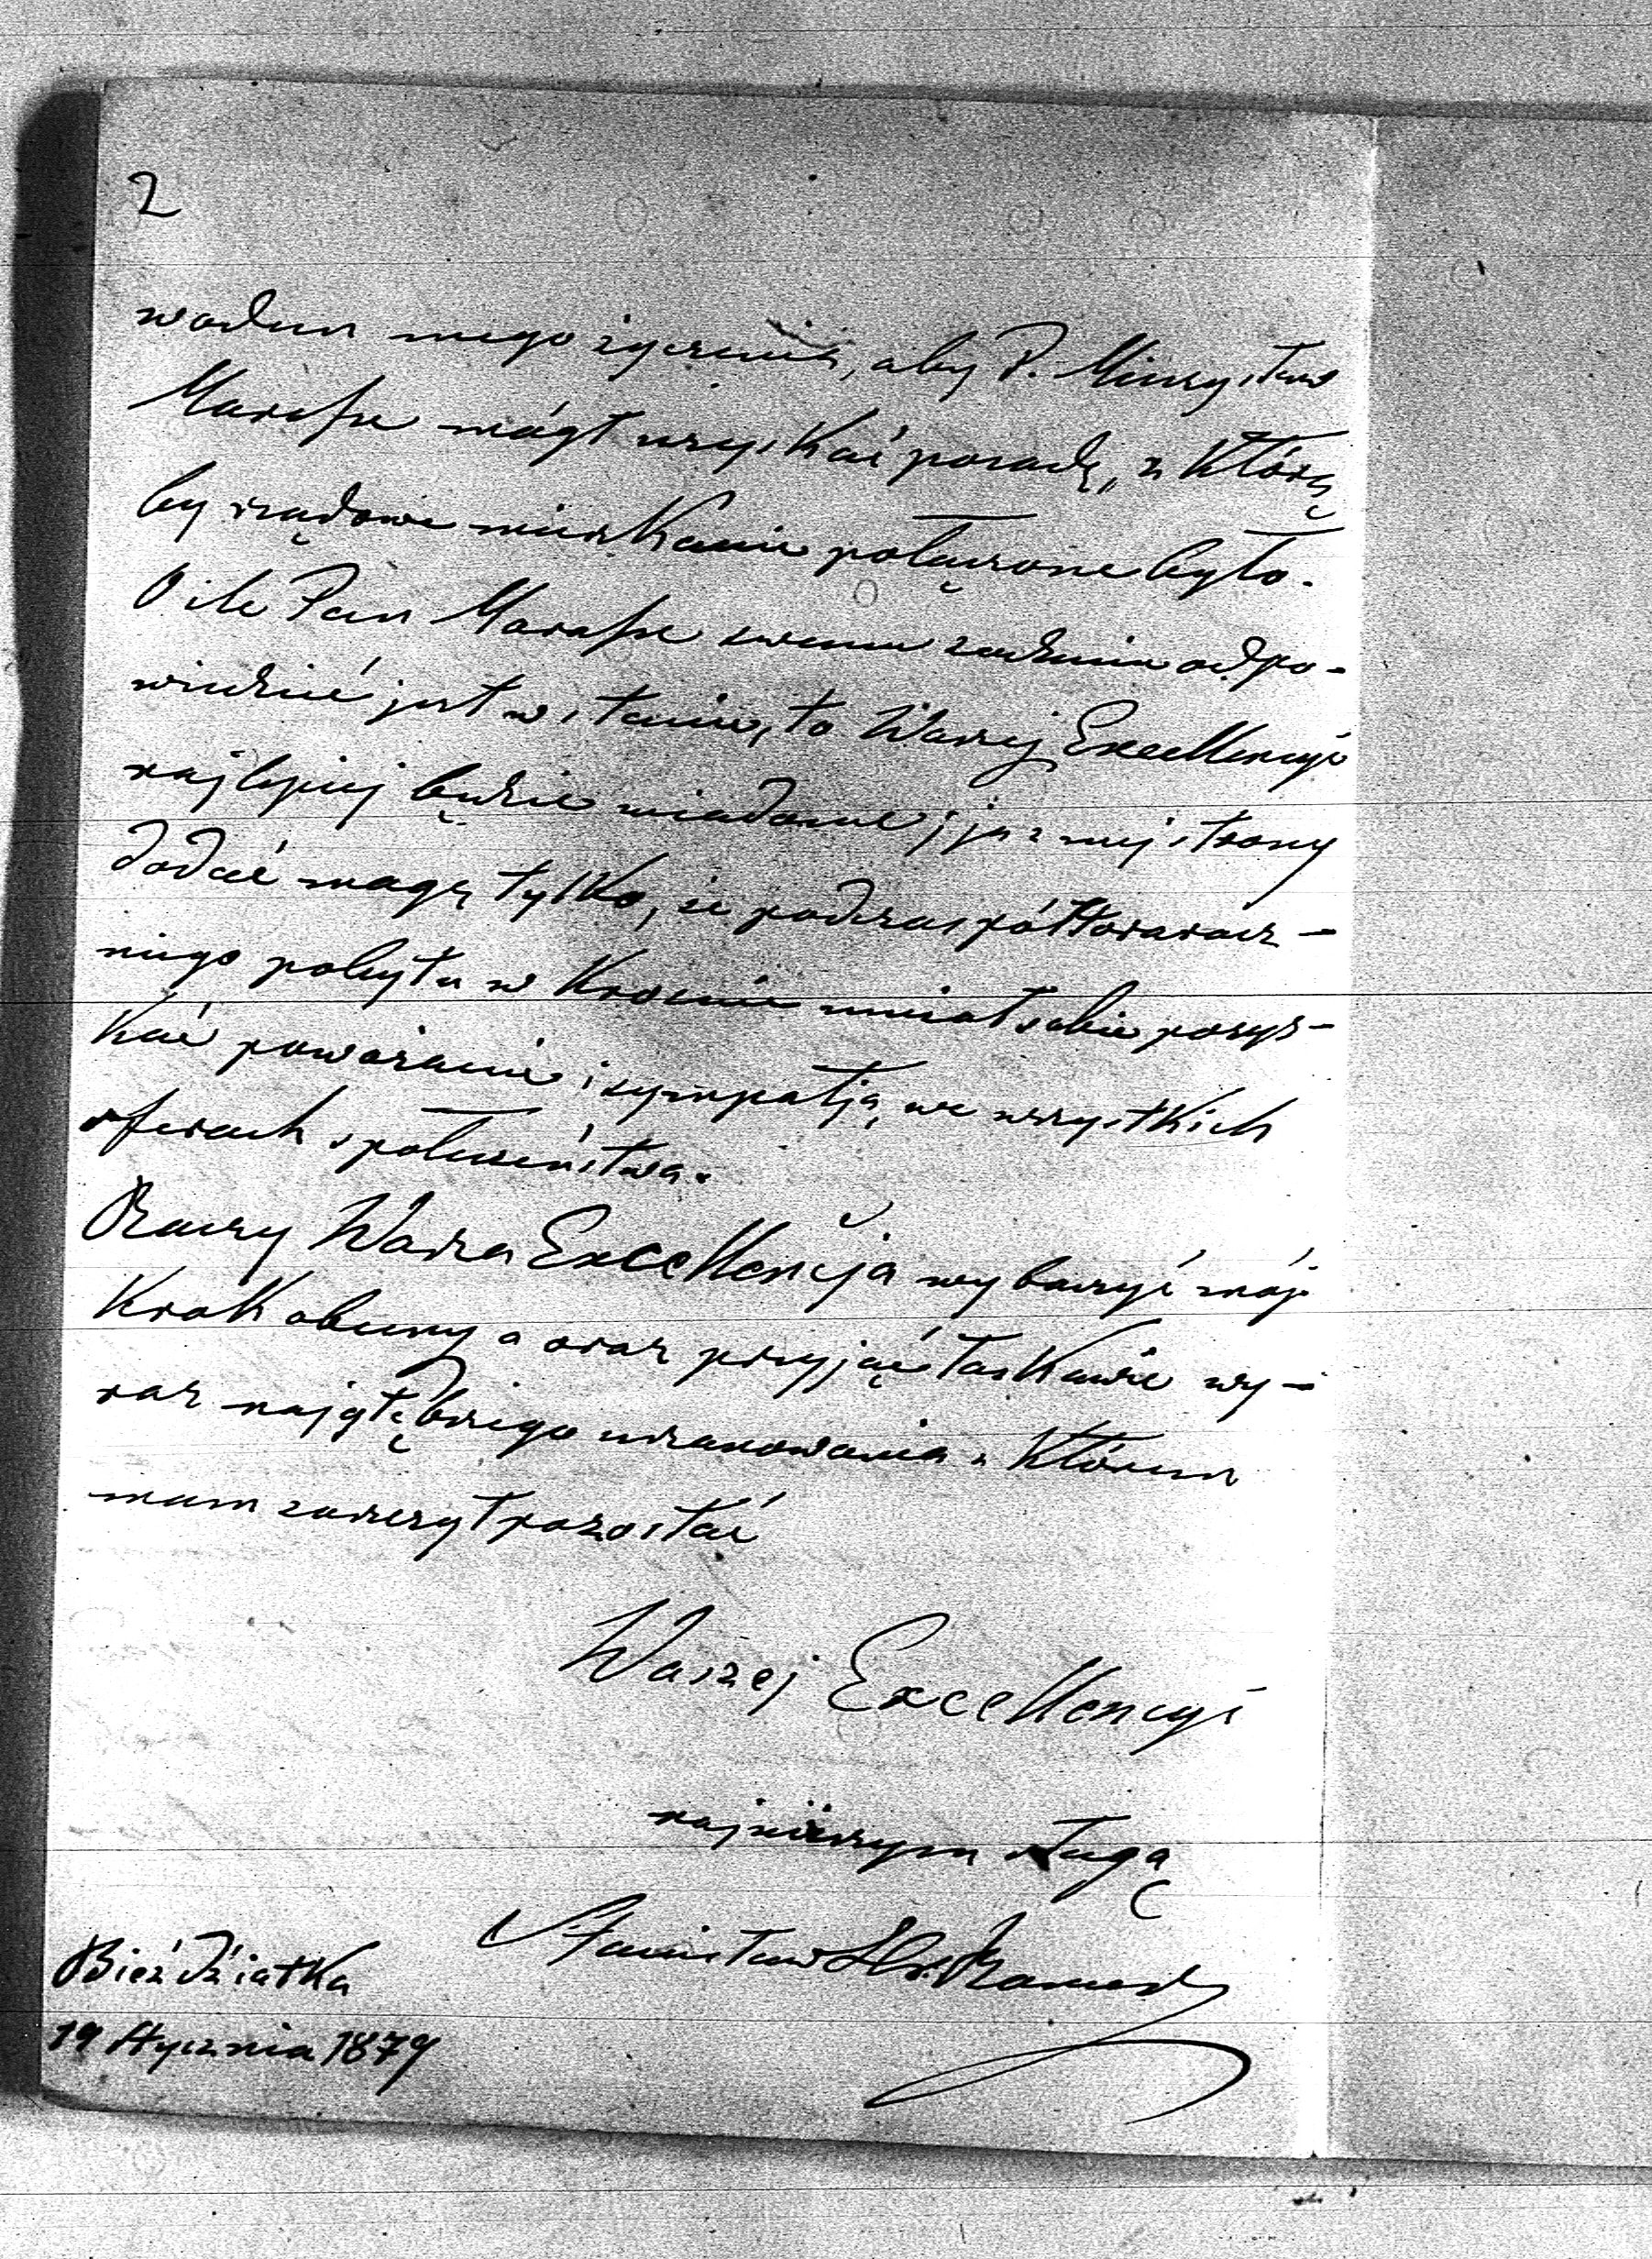 2
wodem mego życzenia, aby P. Mieczysław
Marasse mógł uzyskać posadę, z którą
by rządowe mieszkanie połączone było.
O ile Pan Marasse swemu zadaniu odpo-
wiedzieć jest w stanie, to Waszej Excellencyi
najlepiej będzie wiadome; ja z mej strony
dodać mogę tylko, że podczas półtorarocz-
nego pobytu w Krośnie umiał sobie pozys-
kać poważanie i sympatją we wszystkich
sferach społeczeństwa.
Raczy Wasza Excellencja wybaczyć mój
krok obecny a oraz przyjąć łaskawie wy-
raz najgłębszego uszanowania z którem
mam zaszczyt pozostać
Waszej Excellencyi
najniższym sługą
Stanisław Hr.
Bieździatka
19 stycznia 1879